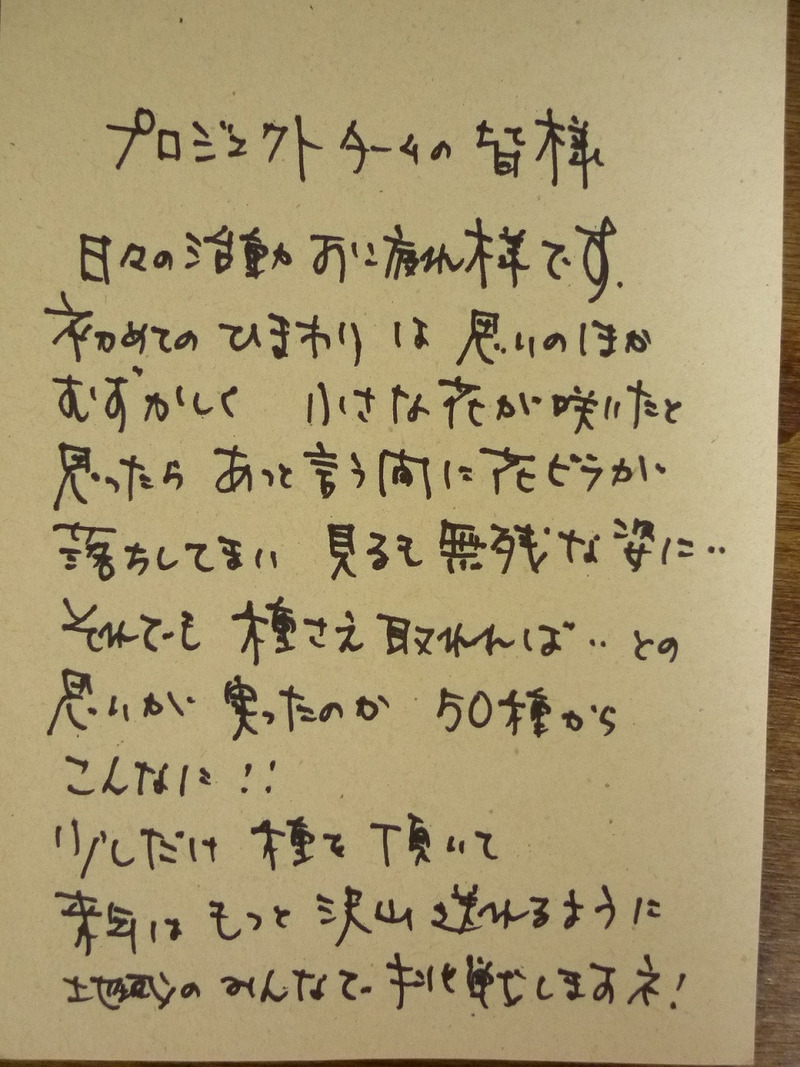 プロジェクトチームの 皆様
日々の活動 お疲れ様です.
初めての ひまわり は 思いのほか
むずかしく 小さな花が咲いたと
思ったら あっと言う間に花ビラが
落ちしてまい 見るも無残な姿に‥
それでも 種さえ取れれば‥との
思いが 実ったのか 50種から
こんなに!!
少しだけ 種を 頂いて
来年は もっと 沢山 送れるように
地域の みんなで 挑戦しますネ!